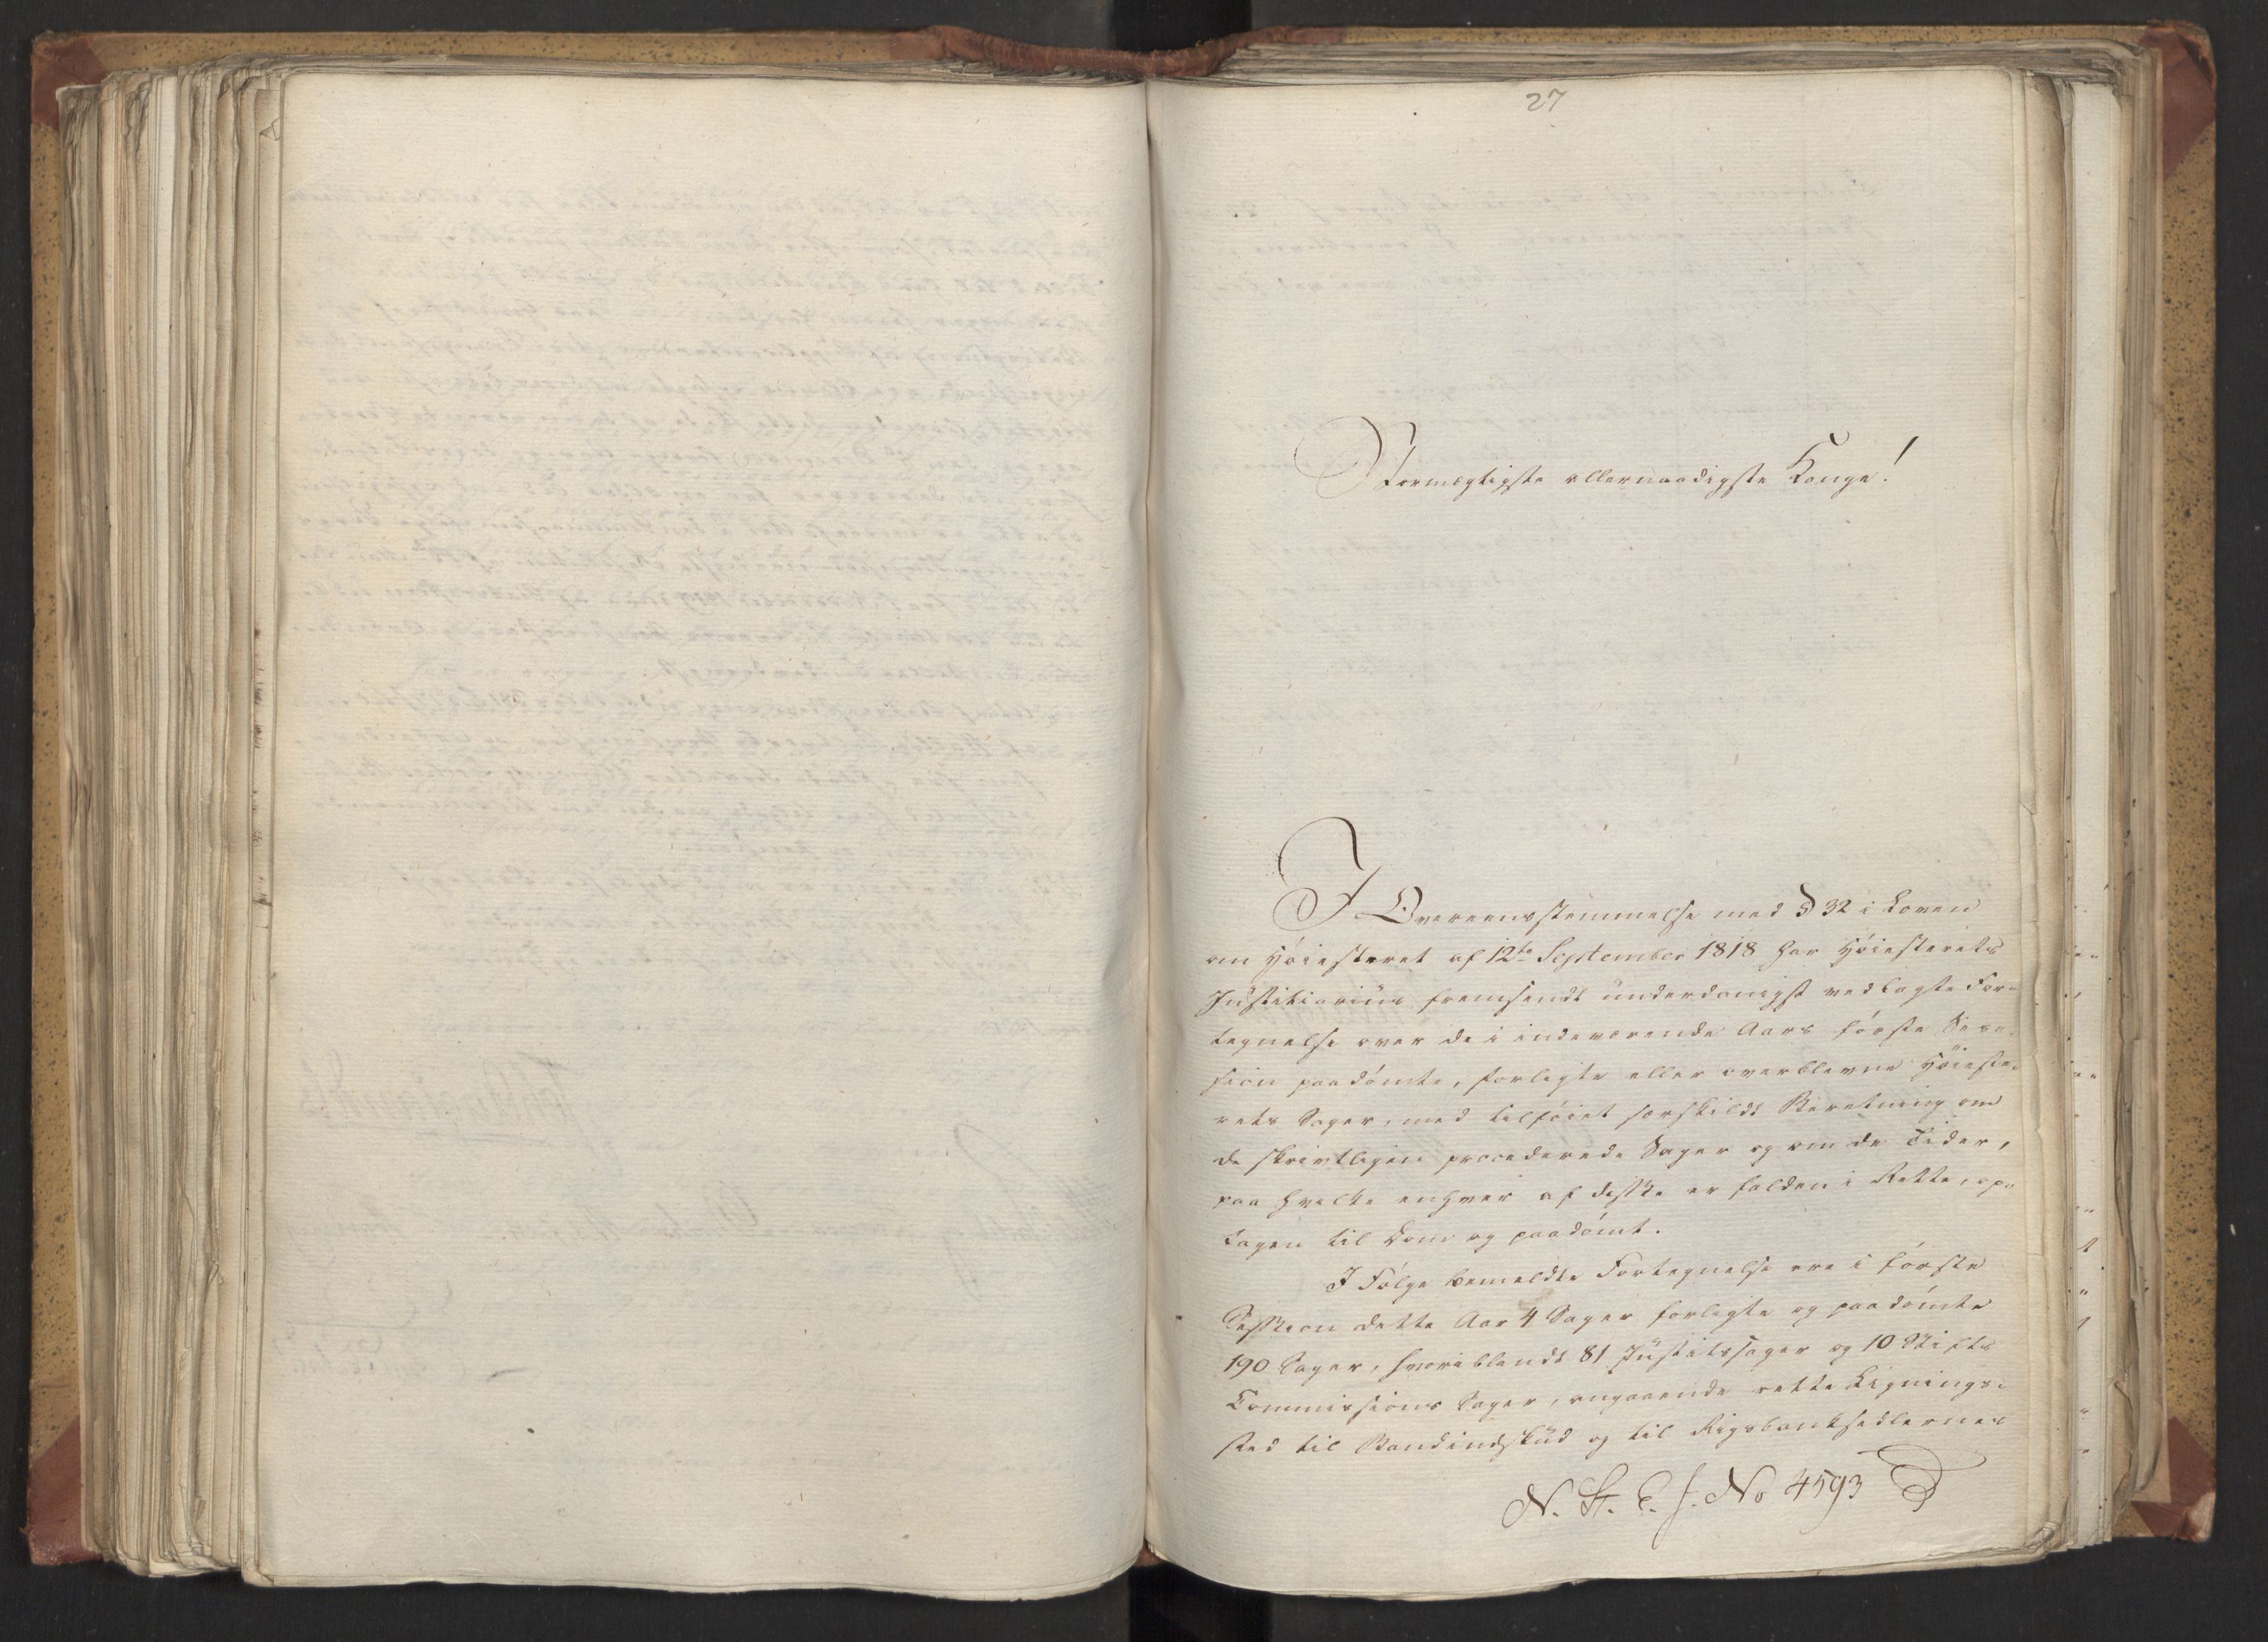 27
Stormægtigste allernaadigste Konge!
I Overeensstemmelse med § 32 i Loven
om Høiesteret af 12te September 1818 har Høiesterets
Justitiarius fremsendt underdanigst vedlagte For-
tegnelse over de i indeværende Aars første Ses-
sion paadømte, forligte eller overblevne Høieste-
rets Sager, med tilføiet særskildt Beretning om
de skrivtligen procederede Sager og om de Tider,
paa hvilke enhver af disse er falden i Rette, op-
tagen til Dom og paadømt.
I Følge bemeldte Fortegnelse ere i første
Session dette Aar 4 Sager forligte og paadømte
190 Sager, hvoriblandt 81 Justitssager og 10 Stifts
Commissions Sager, angaaende rette Lignings-
sted til Bankindskud og til Rigsbanksedlernes
N. St. E. J. No 4593